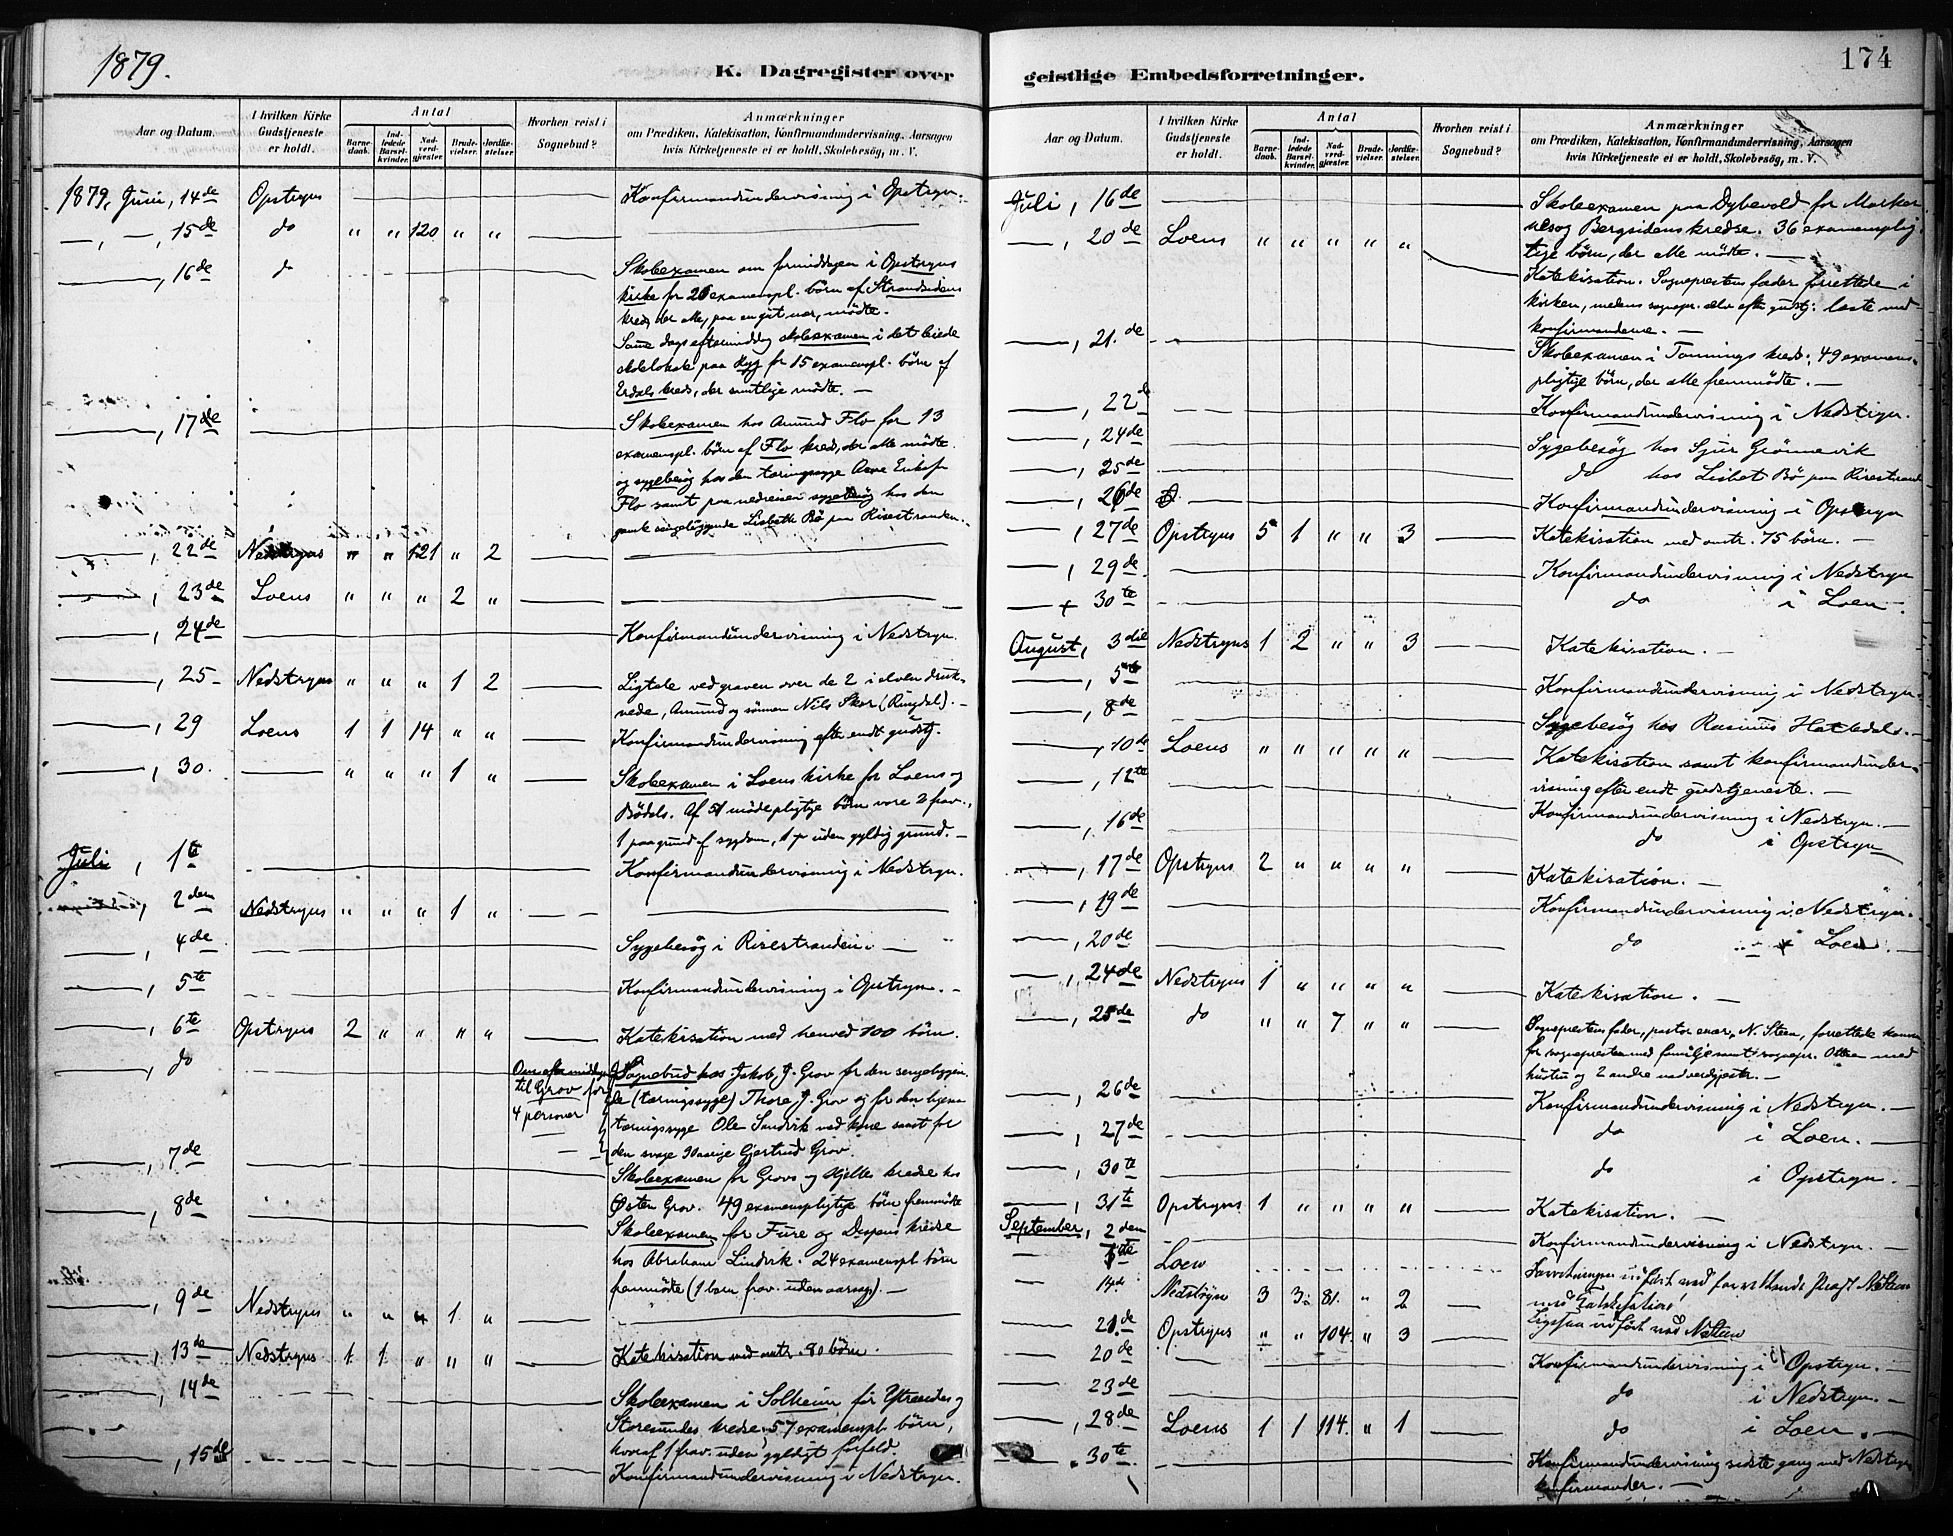 1879.
K. Dagregister over
Aar og Datum.
I hvilken Kirke Gudstjeneste er holdt.
Antal
Barnedaab.
Indledede Barselkvinder.
Nadverdgjester.
Brudevielser.
Jordfæstelser.
Hvorhen reist i Sognebud?
Anmærkninger
om Prædiken, Katekisation, Konfirmandundervisning, Aarsagen
hvis Kirketjeneste ei er holdt, Skolebesög, m. V.
1879, Juni, 14de Opstryns Konfirmandundervisning i Opstryn.
—, —, 15de do " " 120 " " —
—, 16de do Skoleexamen om formiddagen i Opstryns
kirke for 26 examenspl. börn af Strandsidens
kreds, der alle, paa en git nær, mödte.
Same dags eftermiddag skoleexamen i det leiede
skolelokale paa Ryg for 15 examenspl. börn af
Erdals kreds, der samtlige mödte. —
—, 17de Skoleexamen hos Amund Flo for 13
examenspl. börn af Flo kreds, der alle mödte
og sygebesög hos den tæringssyge Anne Eriksen
Flo samt paa nedreisen sygebesög hos den
gamle sengeliggende Lisbeth Bö paa Risestranden.
—, 22de Nedstryns " " 121 " 2 —
—, 23de Loens " " " 2 " —
—, 24de Konfirmandundervisning i Nedstryn.
—, 25 Nedstryns " " " 1 2 — Ligtale ved graven over de 2 i elven druk-
nede, Amund og sönnen Nils Skor (Ringdal). —
—, 29 Loens 1 1 14 " " — Konfirmandundervisning efter endt gudstj.
—, 30. — " " " 1 " — Skoleexamen i Loens kirke for Loens og
Bödals. Af 51 mödepligtige börn vare 2 frav.,
1 paa grund af sygdom, 1 uden gyldig grund. —
Juli, 1te Konfirmandundervisning i Nedstryn.
—, 2den Nedstryns " " " 1 " —
—, 4de Sygebesög i Risestranden. —
—, 5te Konfirmandundervisning i Opstryn. —
—, 6te Opstryns 2 " " " " — Katekisation med henved 100 börn.
—, do Om eftermiddagen til Grov for 4 personer Sognebud hos Jakob J. Grov for den sengeliggen-
de (tæringssyge) Thore J. Grov og for den ligesaa
tæringssyge Ole Sandvik med kone samt for
den svage 90aarige Gjertrud Grov.
—, 7de Skoleexamen for Grovs og Hjelles kredse hos
Østen Grov. 49 examenspligtige börn fremmödte
—, 8de Skoleexamen for Fure og Dispens kredse
hos Abraham Lindvik. 24 examenspl. börn
fremmödte (1 barn frav. uden aarsag). —
—, 9de Nedstryns " " " 1 " —
—, 13de Nedstryns 1 1 " " " — Katekisation med omtr. 80 börn.
—, 14de Skoleexamen i Solheim for Ytreeides og
Storesundes kredse. 57 examenspl. börn,
hvoraf 1 frav. uden gyldigt forfald.
—, 15de Konfirmandundervisning i Nedstryn.
174
geistlige Embedsforretninger.
Aar og Datum.
I hvilken Kirke Gudstjeneste er holdt.
Antal
Barnedaab.
Indledede Barselkvinder.
Nadverdgjester.
Brudevielser.
Jordfæstelser.
Hvorhen reist i Sognebud?
Anmærkninger
om Prædiken, Katekisation, Konfirmandundervisning, Aarsagen
hvis Kirketjeneste ei er holdt, Skolebesög, m. V.
Juli, 16de Skoleexamen paa Dybevold for
og Bergsidens kredse. 36 examensplig-
tige börn, der alle mödte. —
—, 20de Loens " " " " " Katekisation. Sogneprestens fader forrettede i
kirken, medens sognepr. selv efter gudstj. læste med
konfirmandene. —
—, 21.de Skoleexamen i Tonnings kreds; 49 examens-
pligtige börn, der alle fremmödte. —
—, 22de Konfirmandundervisning i Nedstryn.
—, 24de Sygebesög hos Sjur Grönnevik
—, 25de do hos Lisbet Bö paa Risestrand
—, 26de Konfirmandundervisning i Opstryn
—, 27de Opstryns 5 1 " " 3 — Katekisation med omtr. 75 börn. —
—, 29de Konfirmandundervisning i Nedstryn
— 30te do i Loen.
August, 3die Nedstryns 1 2 " " 3 — Katekisation. —
—, 5te Konfirmandundervisning i Nedstryn.
—, 8de Sygebesög hos Rasmus
—, 10de Loens " " " " " Katekisation samt konfirmandunder-
visning efter endt gudstjeneste. —
—, 12te Konfirmandundervisning i Nedstryn. —
—, 16de do i Opstryn
—, 17de Opstryns 2 " " " " — Katekisation. —
—, 19de Konfirmandundervisning i Nedstryn.
—, 20de do i Loen.
—, 24de Nedstryns 1 " " " " — Katekisation. —
—, 25de do " " 7 " " — Sogneprestens fader, pastor N. Steen, forrettede
for sognepresten med familje samt sognepr. med
hustru og 2 andre nadverdgjestr. —
—, 26de Konfirmandundervisning i Nedstryn. —
—, 27de do i Loen. —
—, 30te do i Opstryn. —
—, 31te Opstryns 1 " " " " — Katekisation. —
September, 2den Konfirmandundervisning i Nedstryn. —
— Loen
— 14de Nedstryn 3 3 81. " 2 —
— 21.de Opstryns " " 104. " 3 —
— 20de — Konfirmandundervisning i Opstryn. —
— 23de do i Nedstryn. —
—, 28.de Loens 1 1 114. " 1 do i Loen. —
—, 30te. Konfirmandundervisning sidste gang med Nedstryns
konfirmander. —